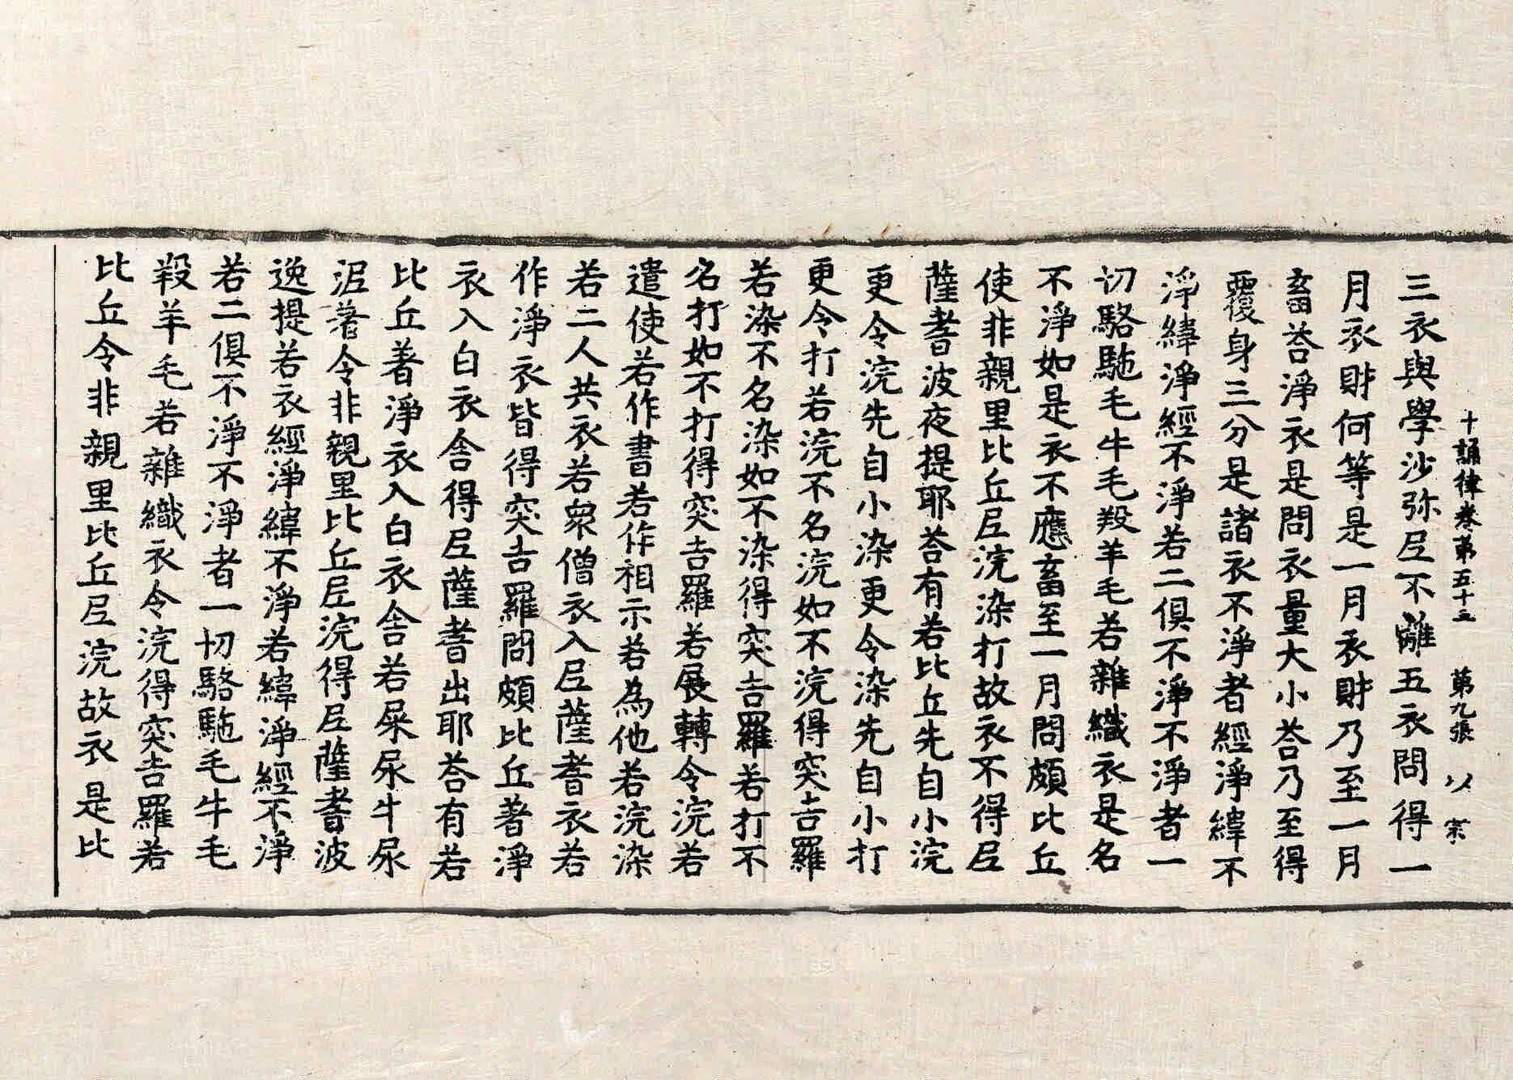 十誦律卷第五十三 第九張 以 宗
三衣與學沙弥尼不離五衣問得一
月衣財何等是一月衣財乃至一月
畜荅淨衣是問衣量大小荅乃至得
覆身三分是諸衣不淨者經淨緯不
淨緯淨經不淨若二俱不淨不淨者一
切駱駞毛牛毛羖羊毛若雜織衣是名
不淨如是衣不應畜至一月問頗比丘
使非親里比丘尼浣染打故衣不得尼
薩耆波夜提耶荅有若比丘先自小浣
更令浣先自小染更令染先自小打
更令打若浣不名浣如不浣得突吉羅
若染不名染如不染得突吉羅若打不
名打如不打得突吉羅若展轉令浣若
遣使若作書若作相示若為他若浣染
若二人共衣若衆僧衣入尼薩耆衣若
作淨衣皆得突吉羅問頗比丘著淨
衣入白衣舍得尼薩耆出耶荅有若
比丘著淨衣入白衣舍若屎尿牛尿
泥著令非親里比丘尼浣得尼薩耆波
逸提若衣經淨緯不淨若緯淨經不淨
若二俱不淨不淨者一切駱駞毛牛毛
羖羊毛若雜織衣令浣得突吉羅若
比丘令非親里比丘尼浣故衣是比